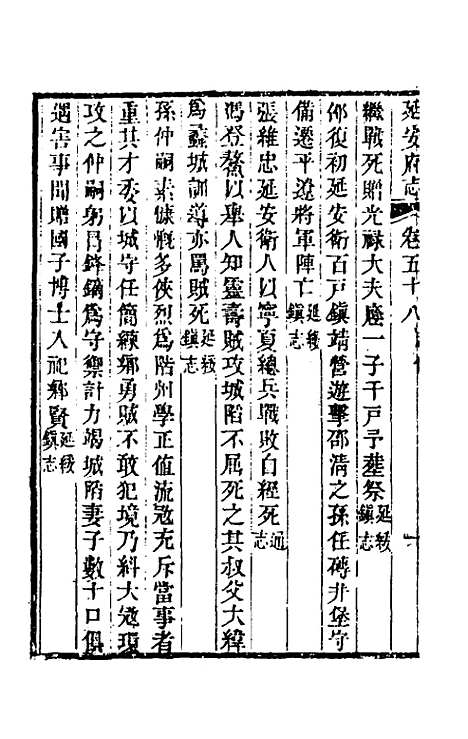 延安府志 卷五十八
繼戰死贈光祿大夫廕一子千戶予葬祭延綏鎮志
邵復初延安衛百戶鎮靖營遊擊邵清之孫任磚井堡守
備遷平遼將軍陣亡延綏鎮志
張維忠延安衛人以寧夏總兵戰敗自經死通志
馮登鰲以舉人知靈壽賊攻城陷不屈死之其叔父大緯
為蠡城訓導亦罵賊死延綏鎮志
孫仲嗣素慷慨多俠烈為階州學正值流寇充斥當事者
重其才委以城守任簡練鄉勇賊不敢犯境乃糾大寇環
攻之仲嗣躬冒鋒鏑為守禦計力竭城陷妻子數十口俱
遇害事聞贈國子博士入祀鄉賢延綏鎮志